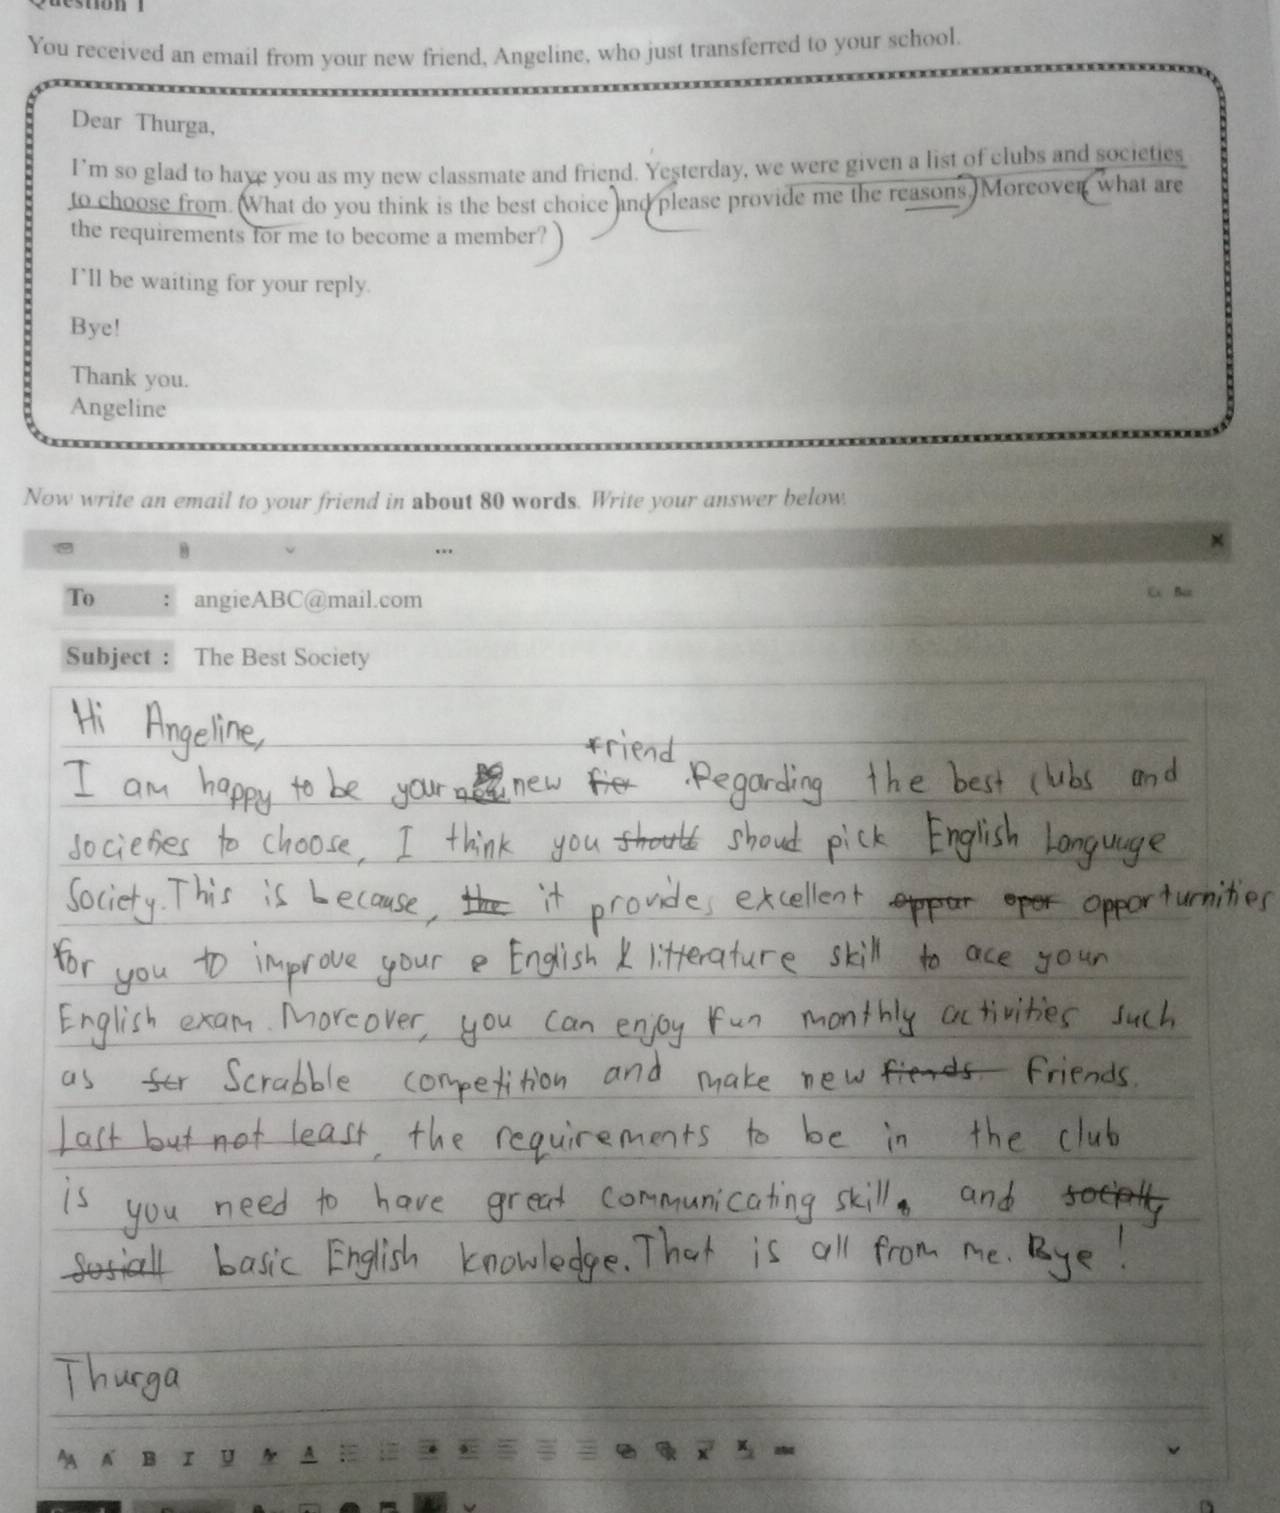 Question 1
You received an email from your new friend, Angeline, who just transferred to your school.
Dear Thurga,
I'm so glad to have you as my new classmate and friend. Yesterday, we were given a list of clubs and societies
to choose from. What do you think is the best choice and please provide me the reasons. Moreover, what are
the requirements for me to become a member?
I'll be waiting for your reply.
Bye!
Thank you.
Angeline
Now write an email to your friend in about 80 words. Write your answer below.
To : angieABC@mail.com
Cc Bcc
Subject : The Best Society
Hi Angeline,
friend
I am happy to be your new fier . Regarding the best clubs and
societies to choose, I think you should shoud pick English Language
Society. This is because, the it provides excellent oppar opor opporturnities
for you to improve your e English & litterature skill to ace your
English exam. Moreover, you can enjoy fun monthly activities such
as scr Scrabble competition and make new fiends friends.
Last but not least, the requirements to be in the club
is you need to have great communicating skill, and socially
sosiall basic English knowledge. That is all from me. Bye!
Thurga